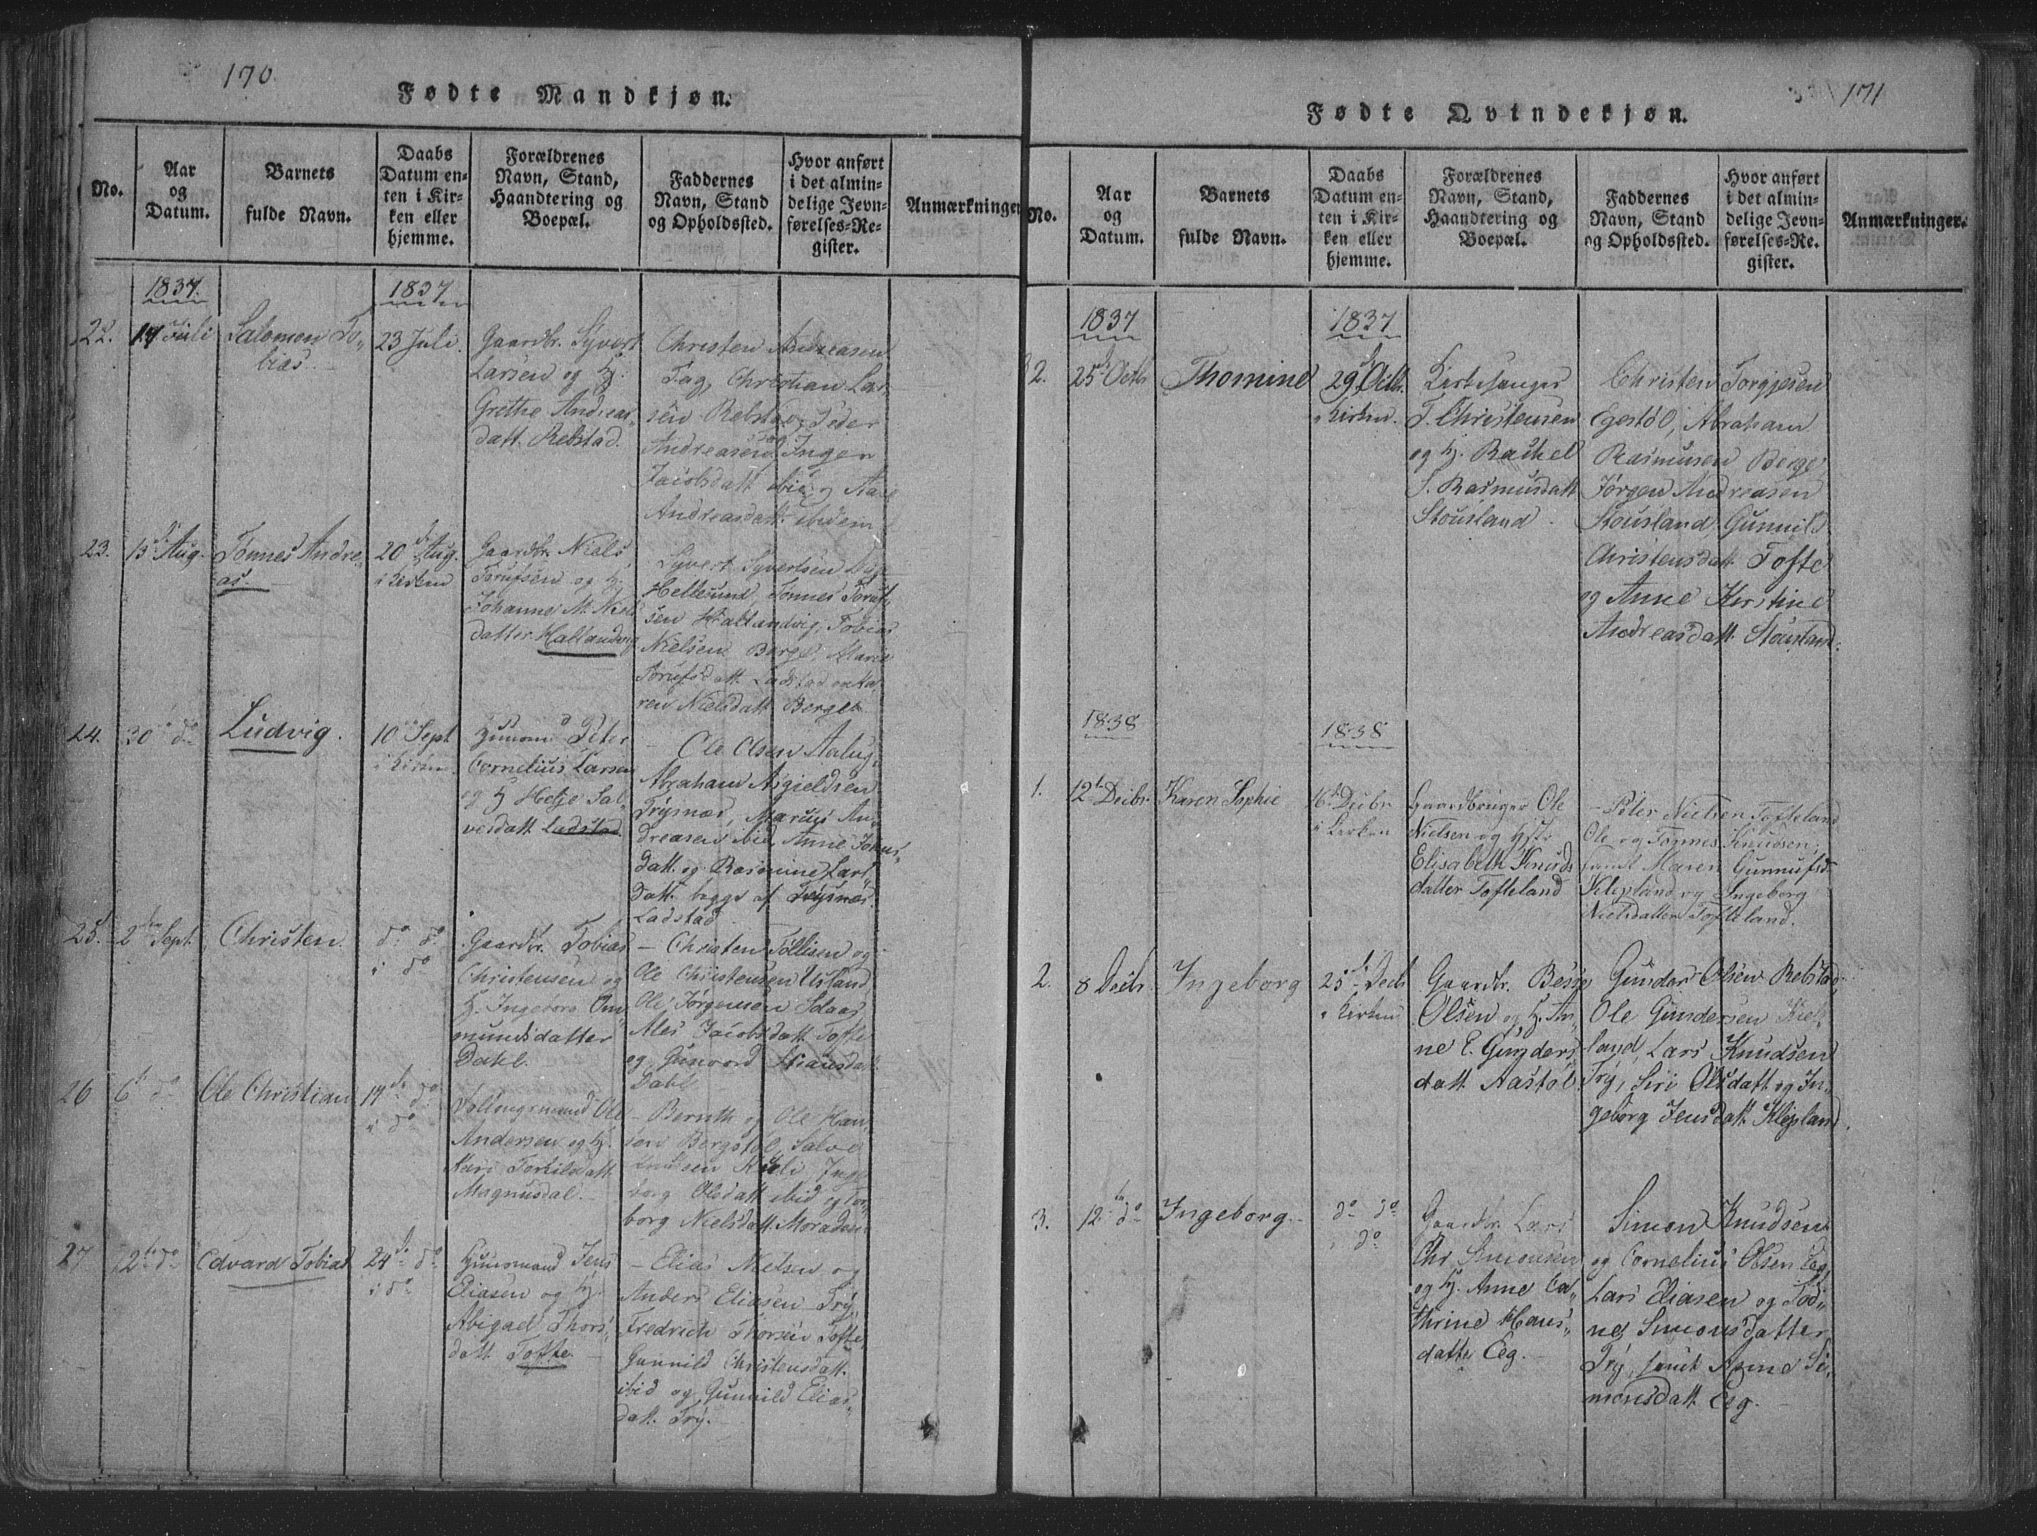 170
Fødte Mandkjøn.
No.
Aar
og
Datum.
Barnets
fulde Navn.
Daabs
Datum en-
ten i Kir-
ken eller
hjemme.
Forældrenes
Navn, Stand,
Haandtering og
Boepæl.
Faddernes
Navn, Stand
og Opholdssted.
Hvor anført
i det almin-
delige Jevn-
førelses-Re-
gister.
Anmærkninger
1837.
1837
22.
17 Juli
Salomon To-
bias.
23 Juli.
Gaardbr. Syvert
Larsen og H.
Grethe Andreas
datt. Rebstad.
Christen Andreasen
Fag, Christian Lar-
sen Rebstad, Peder
Andreasen Inger
Jacobsdatt ibid og Aase
Andreasdatt ibidem
23.
13 Aug.
Tønnes Andre-
as.
20 Aug.
i Kirken
Gaardbr. Niels
Torufsen og H.
Johanne M. Niels
datter Kallandvig
Syvert Syvertsen
Hellesund, Tønnes Toruf-
sen Kallandvig, Tobias
Nielsen Berge, Maren
Torufsdatt Ladstad og Ka-
ren Nielsdatt Berge
24.
30 do
Ludvig.
10 Sept
i Kirken.
Huusmd Peter
Cornelius Larsen
og H Helje Sal-
vesdatt Ladstad
Ole Olsen
Abraham Asgieldsen
Trysnæs, Marcus An-
dreasen ibid, Anne Johns-
datt. og Rasmine Lars
datt. begge af Trysnæs.
Ladstad
25.
2den Sept.
Christen.
do do
i do
Gaardbr. Tobias
Christensen og
H. Ingeborg Om-
mundsdatter
Dahl.
– Christen Tollisen og
Ole Christensen Usland
Ole Jørgensen Sdaas
Ales Jacobsdatt Tofte
og Gunvord
Dahl
26
6te do
Ole Christian
17de do
i do
Ole
Andersen og H.
Kari Torkildsdatt
Magnusdal.
– Bernth og Ole Han-
sen Bergstøl, Salve
Ingeborg Olsdatt ibid og Tor-
borg Nielsdatt
27
12te do
Edvard Tobias
24de do
i do
Huusmand Jens
Eliasen og H.
Abigael Thors-
datt. Tofte.
– Elias Nielsen og
Anders Eliasen Try,
Fredrich Thorsen Tofte
Gunnild Christensdatt.
ibid og Gunnild Elias-
datt. Try.
171
Fødte Qvindekjøn.
No.
Aar
og
Datum.
Barnets
fulde Navn.
Daabs
Datum en-
ten i Kir-
ken eller
hjemme.
Forældrenes
Navn, Stand,
Haandtering og
Boepæl.
Faddernes
Navn, Stand
og Opholdssted.
Hvor anført
i det almin-
delige Jevn-
førelses-Re-
gister.
Anmærkninger.
1837
1837
25 Octb
Thomine
29 Octb.
i Kirken.
Kirkesanger
T. Christensen
og H. Rachel
S. Rasmusdatt
Stousland.
Christen Torgjesen
Egestøl, Abraham
Rasmusen Berge
Jørgen Andreasen
Stousland, Gunnild
Christensdatt Tofte
og Anne Kirstine
Andreasdatt Stousland.
1838
1838
1.
12te Decbr.
Karen Sophie
16 Decbr
i Kirken
Gaardbruger Ole
Nielsen og Hstr
Elisabeth Knuds
datter Tofteland
– Peter Nielsen Tofteland
Ole og Tønnes Knudsen
samt Maren Gunnufsd
Klepland og Ingeborg
Nielsdatter Tofteland.
2.
8 Decbr
Ingeborg
25 Decb
i Kirken
Gaardbr. Besse
Olsen og H. An-
ne E. Gunders
datt Aastøl
Gunder Olsen Rebstad
Ole Gundersen Klep-
land, Lars Knudsen
Try, Siri Olsdatt og In-
geborg Jensdatt Klepland.
3.
12te do
Ingeborg
do do
i do
Gaardbr. Lars
Chr Simonsen
og H. Anne Ca-
thrine Hans-
datter Eeg.
Simon Knudsen
og Cornelius Olsen Eeg
Lars Eliasen og Todi-
ne Simonsdatter
Try, samt Anne Si-
monsdatt Eeg.